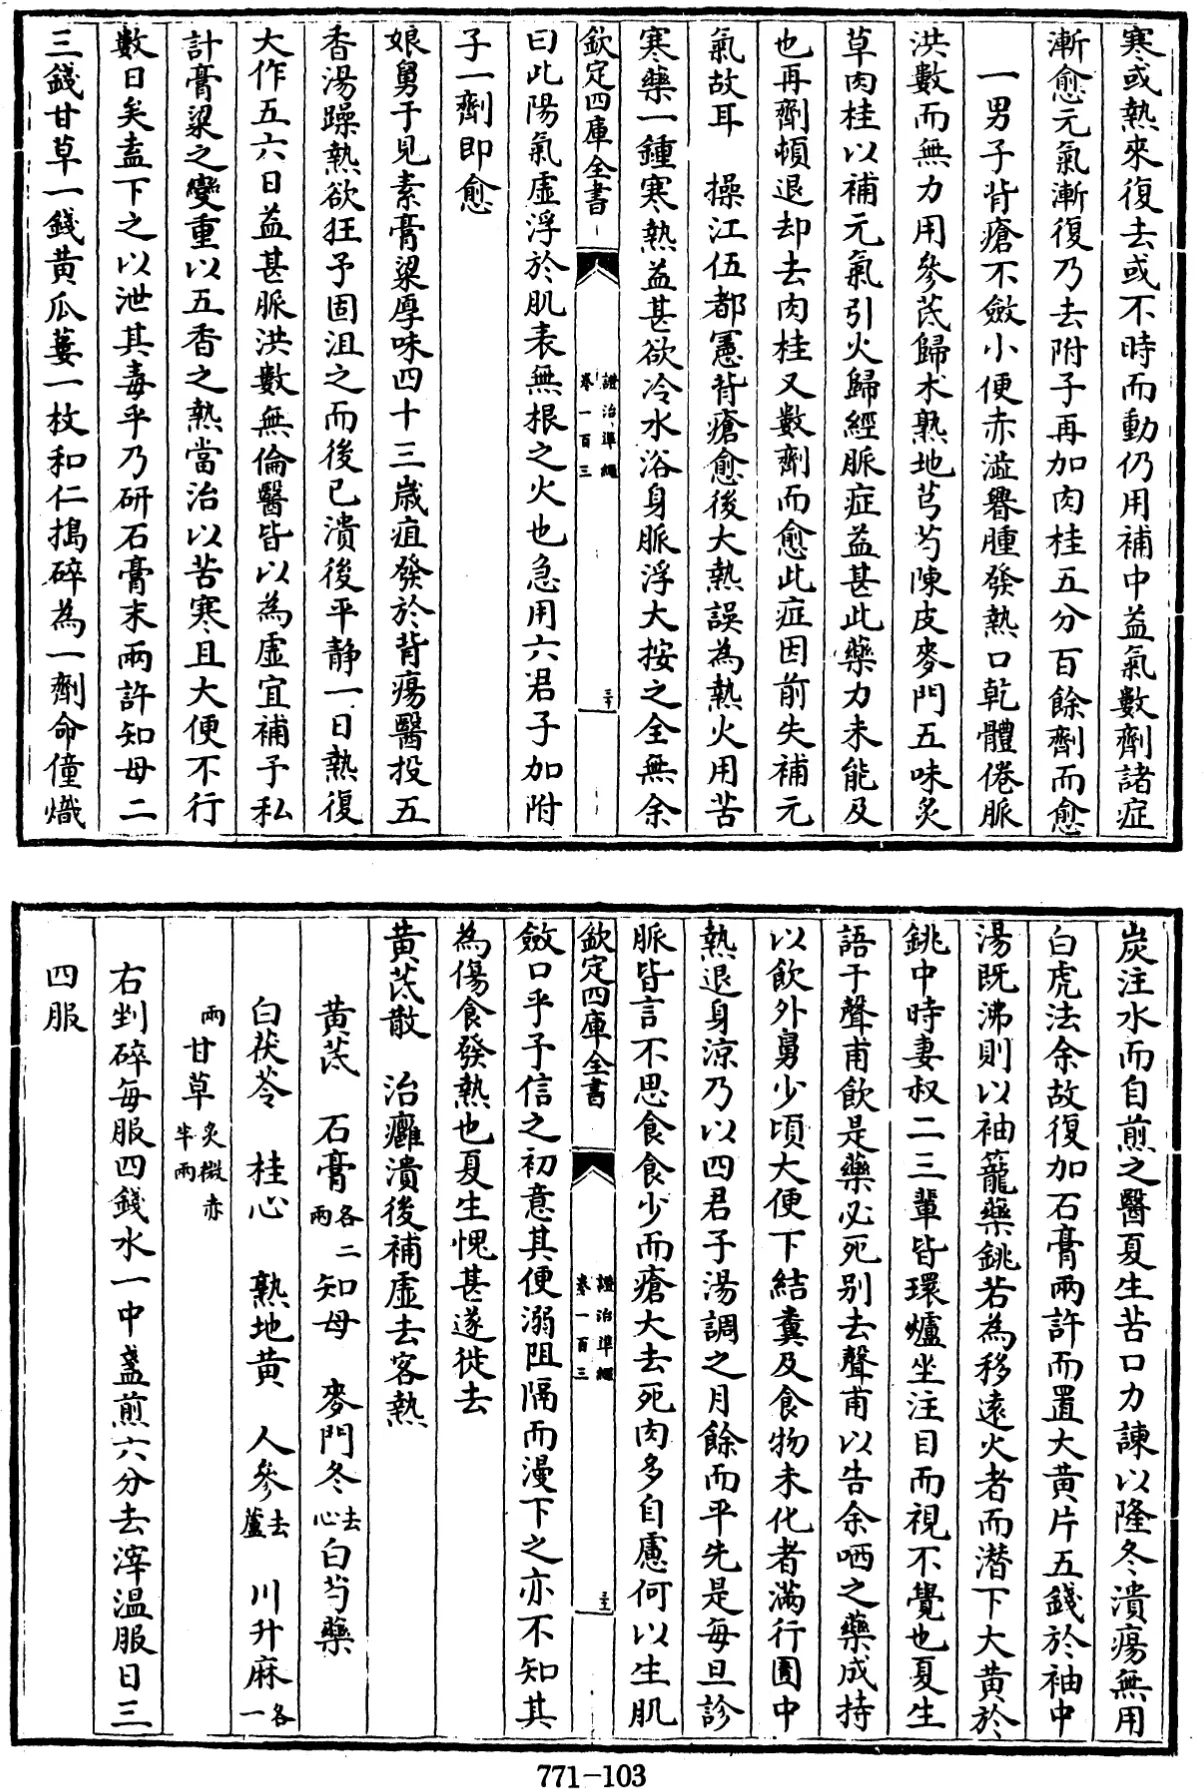 寒或熱來復去或不時而動仍用補中益氣數劑諸症
漸愈元氣漸復乃去附子再加肉桂五分百餘劑而愈
一男子背瘡不斂小便赤澁臖腫發熱口乾體倦脈
洪數而無力用參芪歸术熟地芎芍陳皮麥門五味炙
草肉桂以補元氣引火歸經脈症益甚此藥力未能及
也再劑頓退却去肉桂又數劑而愈此症因前失補元
氣故耳　操江伍都憲背瘡愈後大熱誤為熱火用苦
寒藥一鍾寒熱益甚欲冷水浴身脈浮大按之全無余
欽定四庫全書
證治準繩
卷一百三
三十
曰此陽氣虛浮於肌表無根之火也急用六君子加附
子一劑即愈
娘舅于見素膏粱厚味四十三歲疽發於背瘍醫投五
香湯躁熱欲狂予固沮之而後已潰後平靜一日熱復
大作五六日益甚脈洪數無倫醫皆以為虛宜補予私
計膏粱之變重以五香之熱當治以苦寒且大便不行
數日矣盍下之以泄其毒乎乃研石膏末兩許知母二
三錢甘草一錢黄瓜蔞一枚和仁搗碎為一劑命僮熾
炭注水而自煎之醫夏生苦口力諫以隆冬潰瘍無用
白虎法余故復加石膏兩許而置大黄片五錢於袖中
湯既沸則以袖籠藥銚若為移遠火者而潛下大黄於
銚中時妻叔二三輩皆環爐坐注目而視不覺也夏生
語于聲甫飲是藥必死别去聲甫以告余哂之藥成持
以飲外舅少頃大便下結糞及食物未化者滿行圊中
熱退身涼乃以四君子湯調之月餘而平先是每旦診
脈皆言不思食食少而瘡大去死肉多自慮何以生肌
欽定四庫全書
證治準繩
卷一百三
斂口乎予信之初意其便溺阻隔而漫下之亦不知其
為傷食發熱也夏生愧甚遂徙去
黄芪散　治癰潰後補虛去客熱
黄芪　石膏各二兩　知母　麥門冬去心　白芍藥
白茯苓　桂心　熟地黄　人參去蘆　川升麻各一
兩　甘草炙微赤半兩
右剉碎每服四錢水一中盞煎六分去滓温服日三
四服
771-103